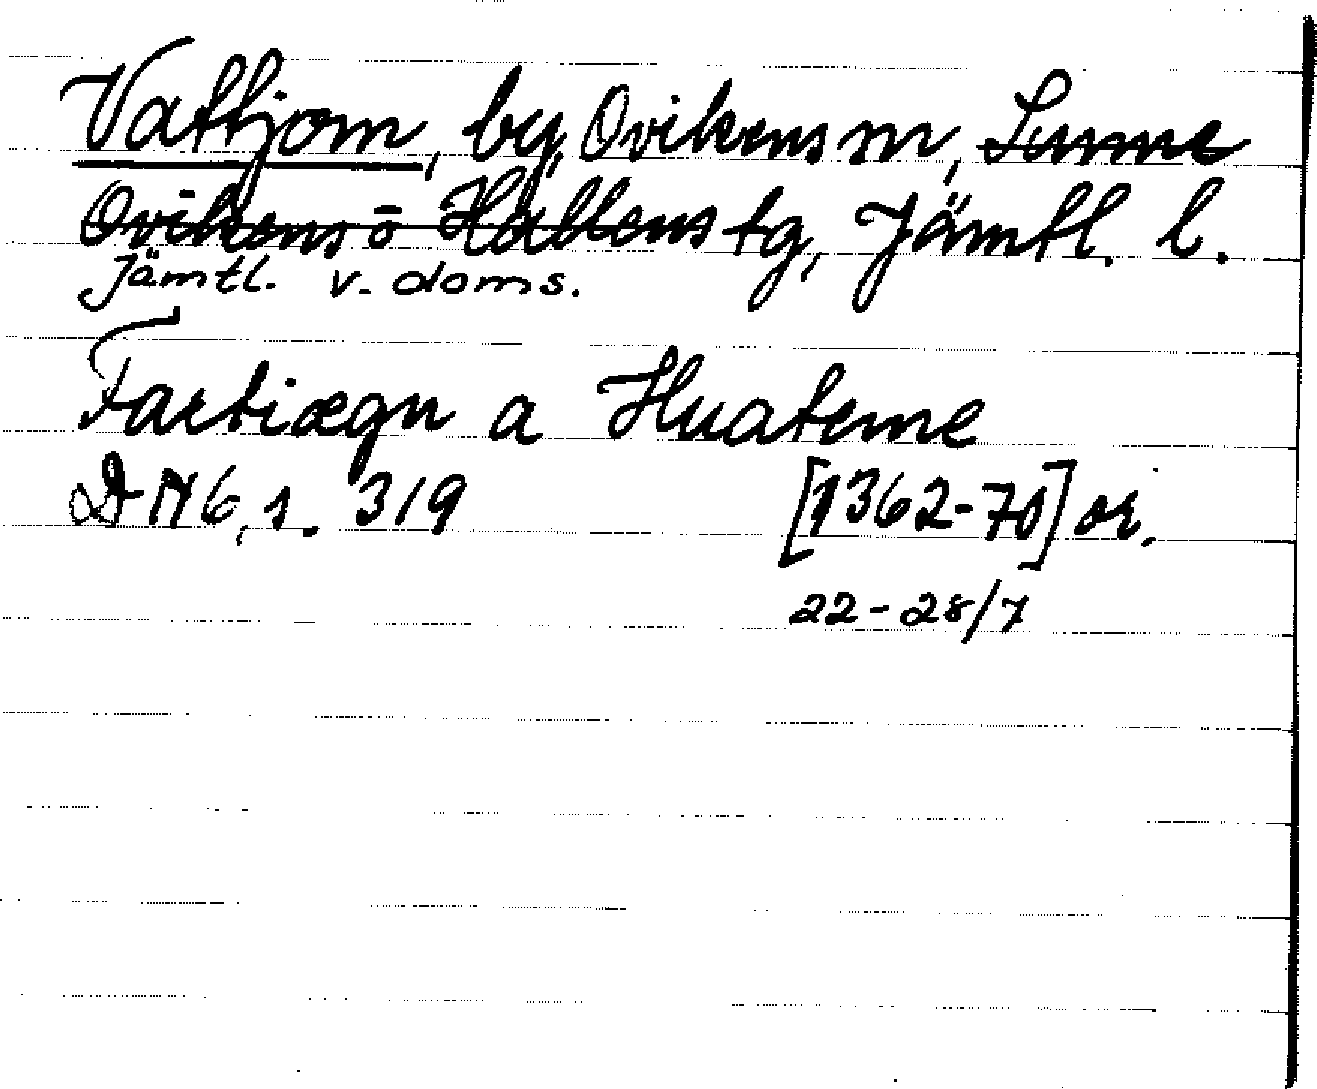 Vattjom, by, Ovikens sn, Sunne
Ovikens o Hallens tg, Jämtl. l.
Jämtl. v. doms.
Farþiægn a Huateme
DN 6, 1. 319 [1362-70] or.
22-28/7